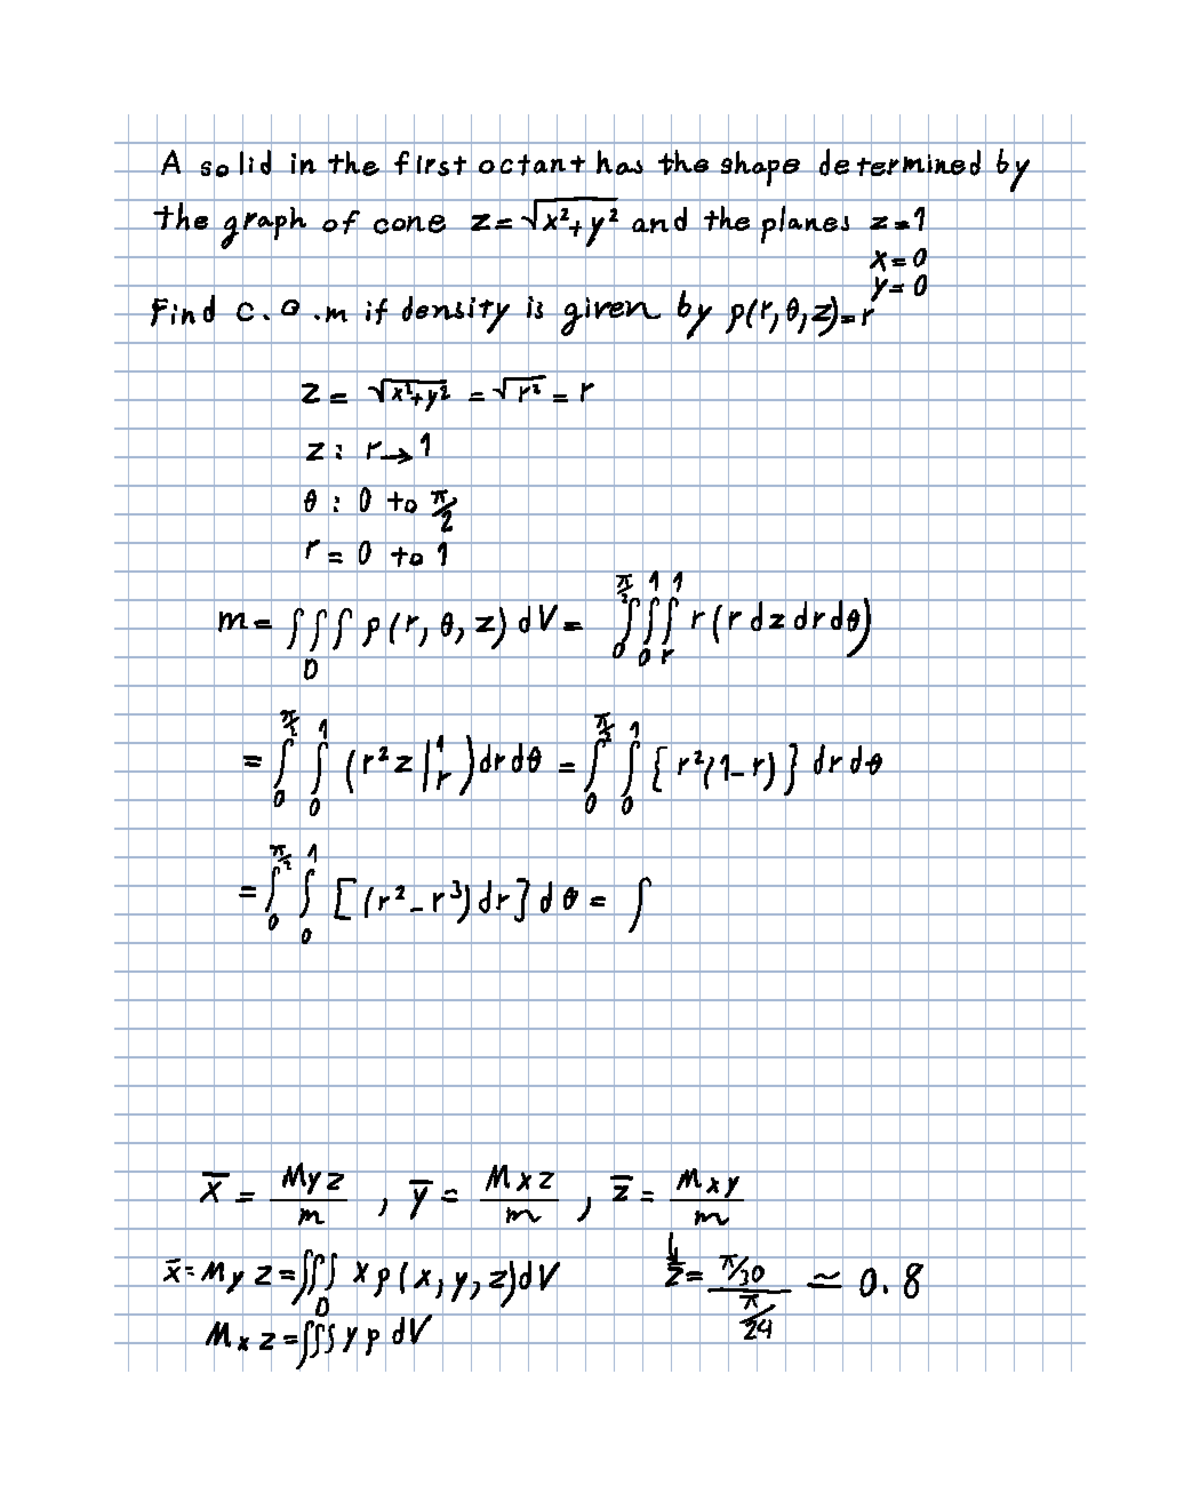 A solid in the first octant has the shape determined by
the graph of cone z=√x²+y² and the planes z=1
x=0
y=0
Find c.o.m if density is given by ρ(r,θ,z)=r
z = √x²+y² = √r² = r
z : r→1
θ : 0 to π/2
r = 0 to 1
m = ∫∫∫_D ρ(r, θ, z) dV = ∫_0^{π/2} ∫_0^1 ∫_r^1 r(r dz dr dθ)
= ∫_0^{π/2} ∫_0^1 (r²z|_r^1) dr dθ = ∫_0^{π/2} ∫_0^1 {r²(1-r)} dr dθ
= ∫_0^{π/2} ∫_0^1 [(r²-r³)dr] dθ = ∫
x̄ = Myz/m , ȳ = Mxz/m , z̄ = Mxy/m
x̄= Myz=∫∫∫_D xρ(x,y,z)dV ↳ z̄ = (π/30)/(π/24) ≃ 0.8
Mxz=∫∫∫ yρ dV